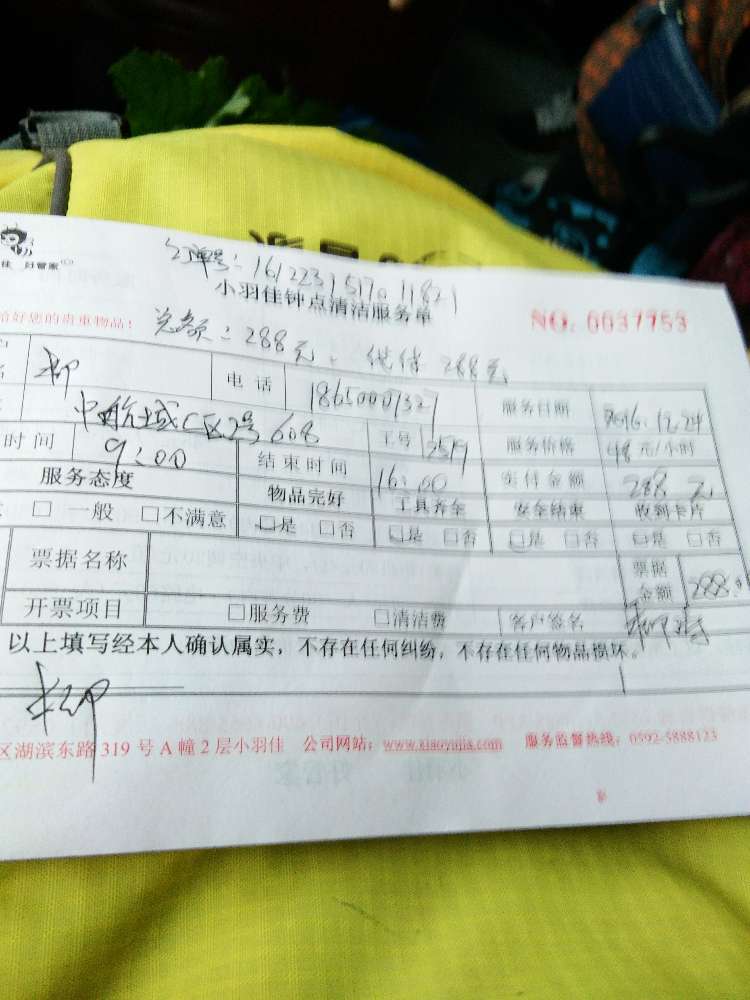 订单号：1612231517011821
佳 好管家
小羽佳钟点清洁服务单
NO. 0037753
给好您的贵重物品！
总额：288元、代付288元
名 柳 电话 18650001327 服务日期 2016.12.24
中航城C区2号608 工号 2519 服务价格 48元/小时
时间 9:00 结束时间 16:00 实付金额 288元
服务态度 物品完好 工具齐全 安全结束 收到卡片
□一般 □不满意 □是 □否 □是 □否 □是 □否 □是 □否
票据名称 票据金额 288.
开票项目 □服务费 □清洁费 客户签名 柳
以上填写经本人确认属实，不存在任何纠纷，不存在任何物品损坏。
柳
区湖滨东路319号A幢2层小羽佳 公司网站：www.xiaoyujia.com 服务监督热线：0592-5888123